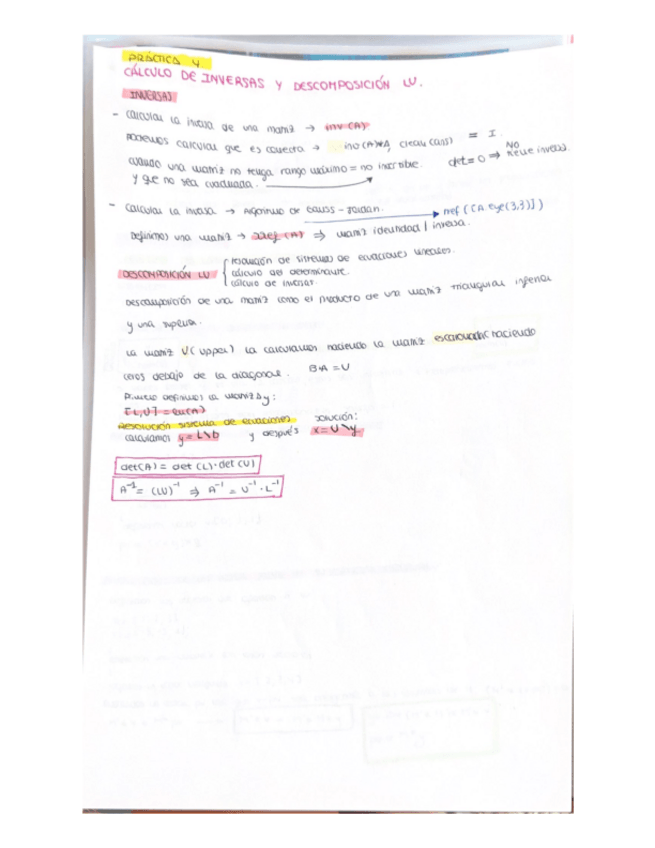 PRÁCTICA 4
CÁLCULO DE INVERSAS Y DESCOMPOSICIÓN LU.
INVERSAS
- Calcular la inversa de una matriz → inv(A)
Podemos calcular que es correcta → inv(A)*A, clean(ans) = I.
cuando una matriz no tenga rango máximo = no inversible. det=0 ⇒ NO tiene inversa.
y que no sea cuadrada.
- Calcular la inversa → Algoritmo de Gauss-Jordan. → rref([A.eye(3,3)])
Definimos una matriz → rref(A) ⇒ matriz identidad | inversa.
DESCOMPOSICIÓN LU { resolución de sistemas de ecuaciones lineales.
cálculo del determinante.
cálculo de inversas.
Descomposición de una matriz como el producto de una matriz triangular inferior
y una superior.
La matriz U (upper) la calculamos haciendo la matriz escalonada (haciendo
ceros debajo de la diagonal. B·A = U
Primero definimos la matriz A y:
[L,U] = lu(A)
Resolución sistema de ecuaciones solución:
calculamos y = L\b y después x = U\y
det(A) = det(L)·det(U)
A⁻¹ = (LU)⁻¹ ⇒ A⁻¹ = U⁻¹·L⁻¹